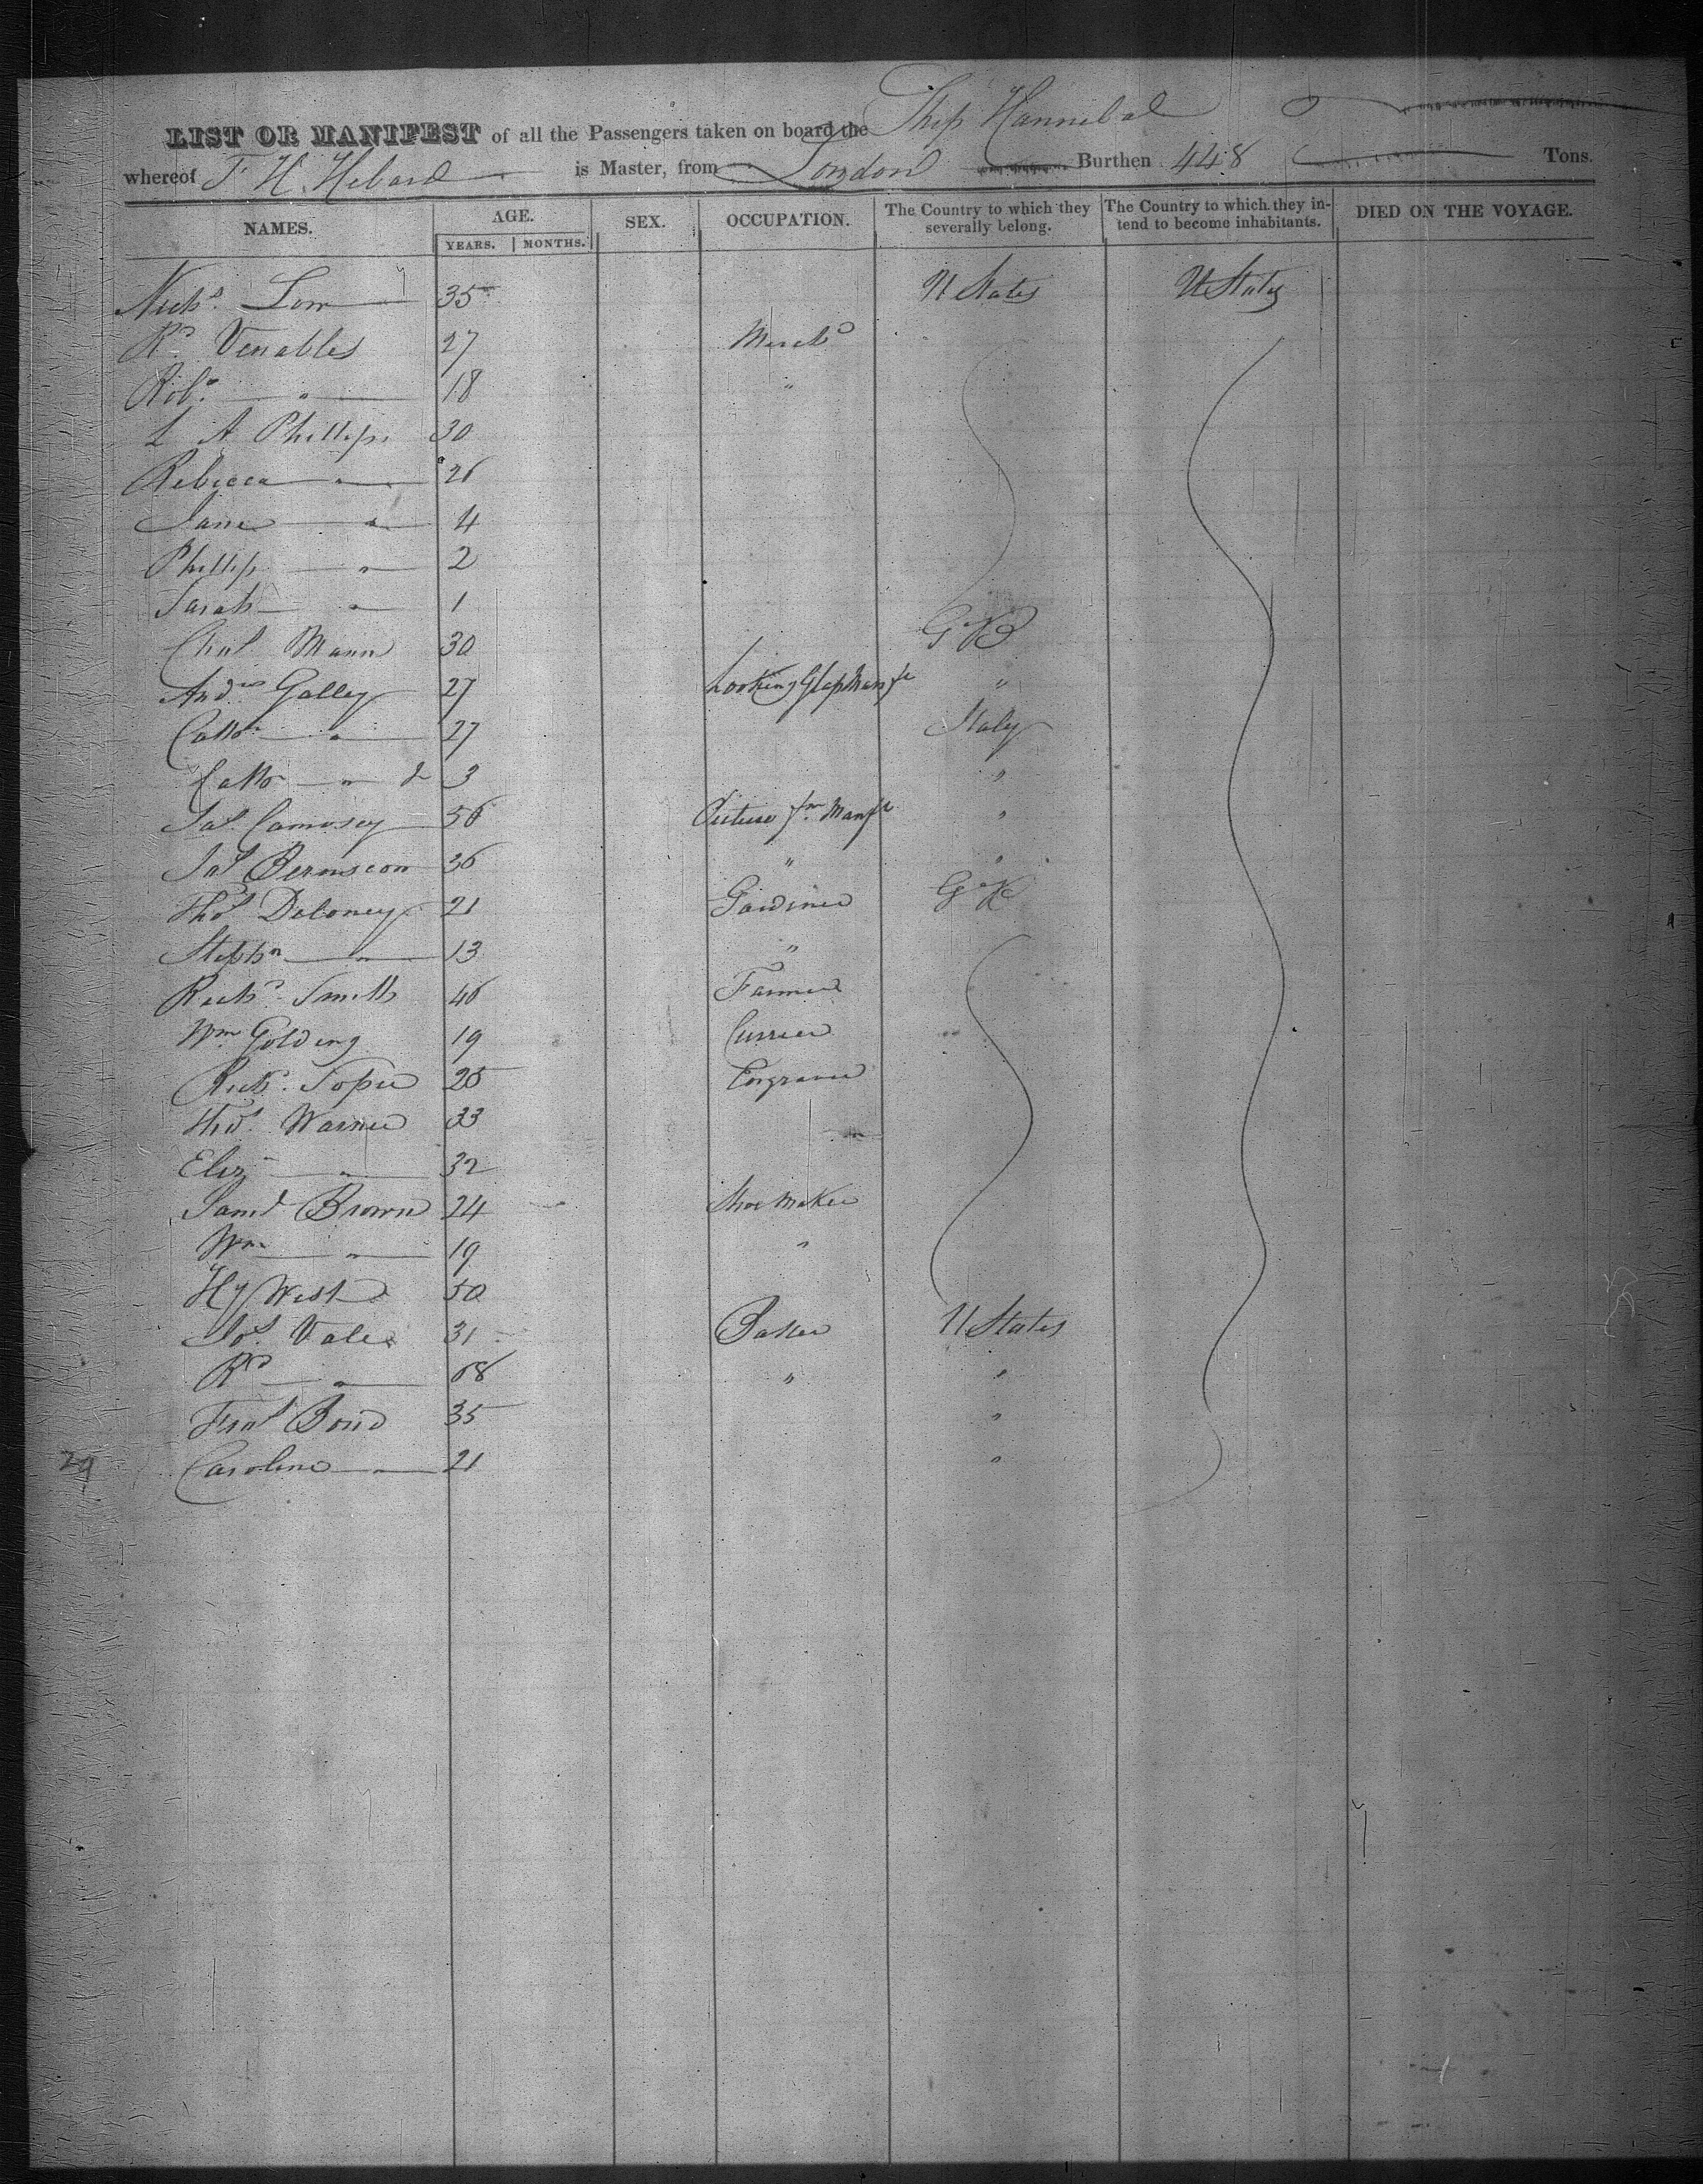 LIST OR MANIFEST of all the Passengers taken on board the Ship Hannibal
whereof F H Hebard is Master, from London Burthen 448 Tons.
NAMES. AGE. YEARS. MONTHS. SEX. OCCUPATION. The Country to which they severally belong. The Country to which they intend to become inhabitants. DIED ON THE VOYAGE.
Nichs. Low 35 U States U States
Rd Venables 27 Merchs
Robt. " 18 "
L A Phillips 30
Rebecca " 26
Jane " 4
Phillip " 2
Sarah " 1
Chas Mann 30 G B
Andw Galley 27 Looking Glass Manfr "
Cathr " 27 Italy
Cathr " 2 3 "
Jas Camosey 56 Picture fm Manfr "
Jas 36 " "
Thos Deloney 21 Gardiner
Stephn " 13 "
Richd. Smith 46 Farmer
Wm Golding 19 Currier
Richd. Soper 25 Engraver
Thos. Warner 33
Eliz " 32
Saml Brown 24 Shoe Maker
Wm " 19 "
Hy West 50
Jos. Vale 31 Baker U States
Rd " 68 " "
Fras Bond 35 "
29 Caroline " 21 "